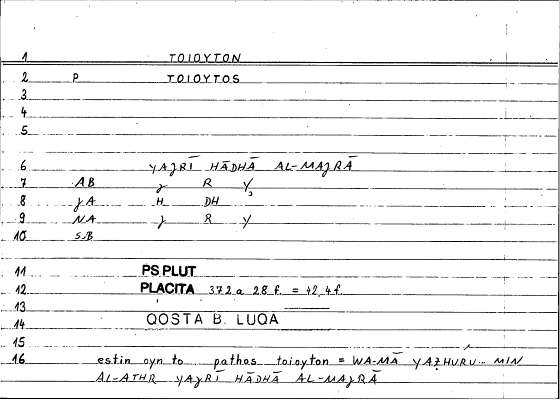 1 TOIOYTON
2 P TOIOYTOS
3
4
5
6 YAJRĪ HĀDHĀ AL-MAJRĀ
7 AB J R Y
8 JA H DH
9 NA J R Y
10 S.B
11 PS PLUT
12 PLACITA 372 a 28 f. = 42,4 f.
13
14 QOSTA B. LUQA
15
16 estin oyn to pathos toioyton = WA-MĀ YAẒHURU... MIN
AL-ATHR YAJRĪ HĀDHĀ AL-MAJRĀ